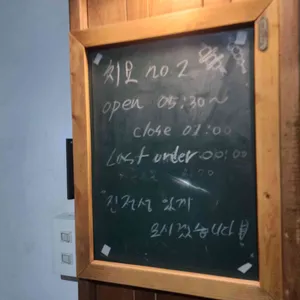 치요 no.2
open 05:30~
close 01:00
Last order 00:00
"진정성 있게
모시겠습니다"